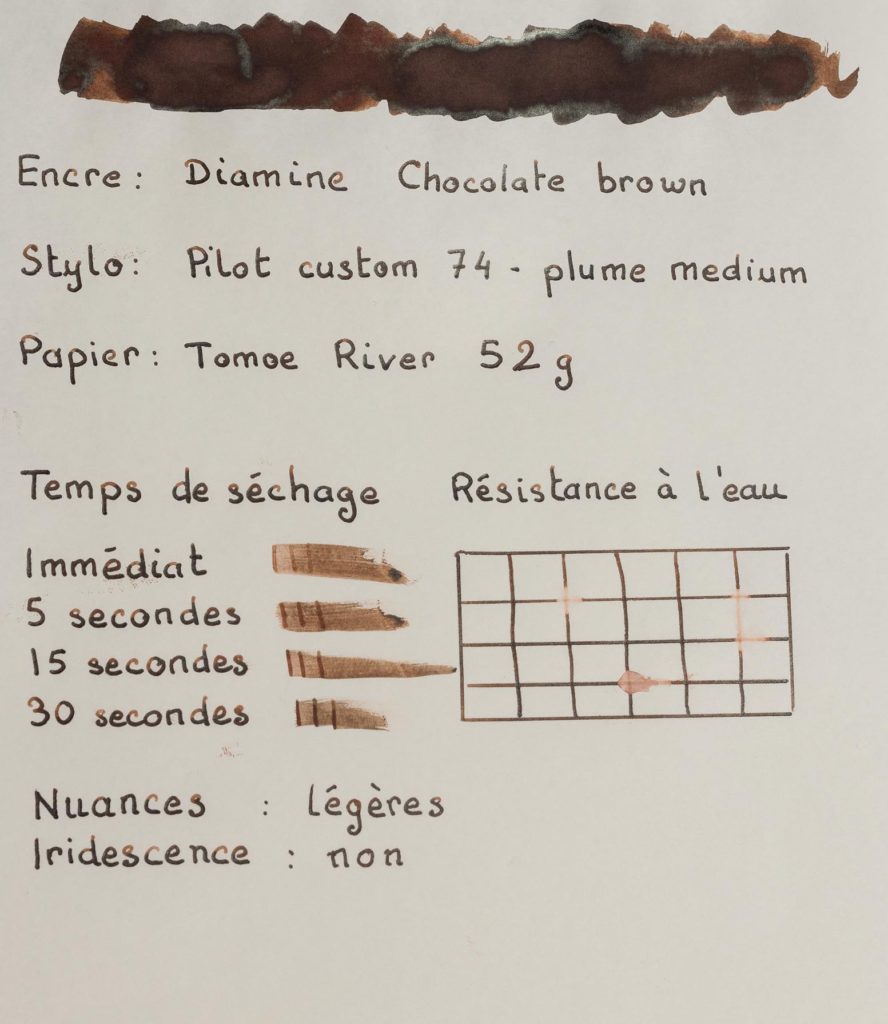 Encre : Diamine Chocolate brown
Stylo : Pilot custom 74 - plume medium
Papier : Tomoe River 52 g
Temps de séchage
Résistance à l'eau
Immédiat
5 secondes
15 secondes
30 secondes
Nuances : légères
Iridescence : non